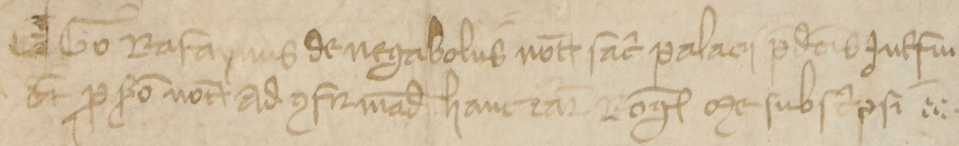 Ego Rafaynus de negabolus nott sac palacij pdcis Intfui
et p sco nott Ad 9frmad hanc car Rog me subscpsi